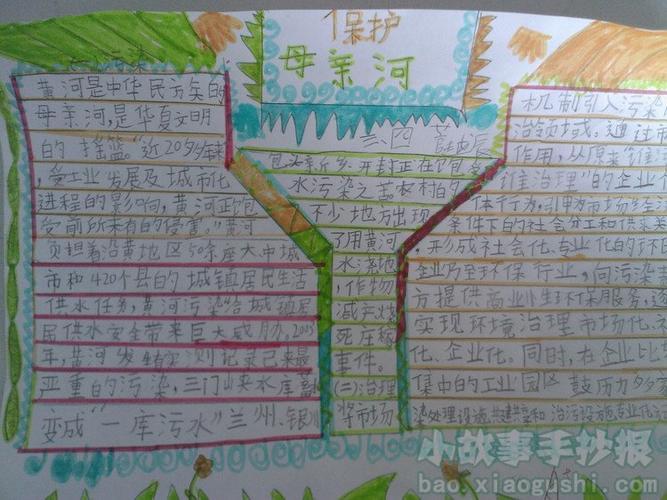 保护
母亲河
(一)污染
黄河是中华民族的
母亲河,是华夏文明
的"摇篮"。近20多年来
,受工业发展及城市化
进程的影响,黄河正饱
受前所未有的侵害。"黄河
负担着沿黄地区50余座大中城
市和420个县的城镇居民生活
供水任务,黄河污染给城镇居
民供水安全带来巨大威胁。2003
年,黄河发生有实测记录已来最
严重的污染,三门峡水库蓄
变成"一库污水"兰州、银川
三、四
包头新乡、开封正在饱受
水污染之苦农村
不少地方出现
了用黄河
水浇地
,作物
减产烧
死庄稼
事件。
(二)治理
将市场
机制引入污染
治领域。通过市
作用,从原来"谁
谁治理"的企业
体行为,引申为市场经
条件下的社会分工和供求关
,形成社会化、专业化的环
企业乃至环保行业,向污染
方提供商业性环保服务,
实现环境治理市场化、
化、企业化。同时,在企业比
集中的工业园区鼓励多
染处理设施共建共享和治污设施专业化
小故事手抄报
bao.xiaogushi.com